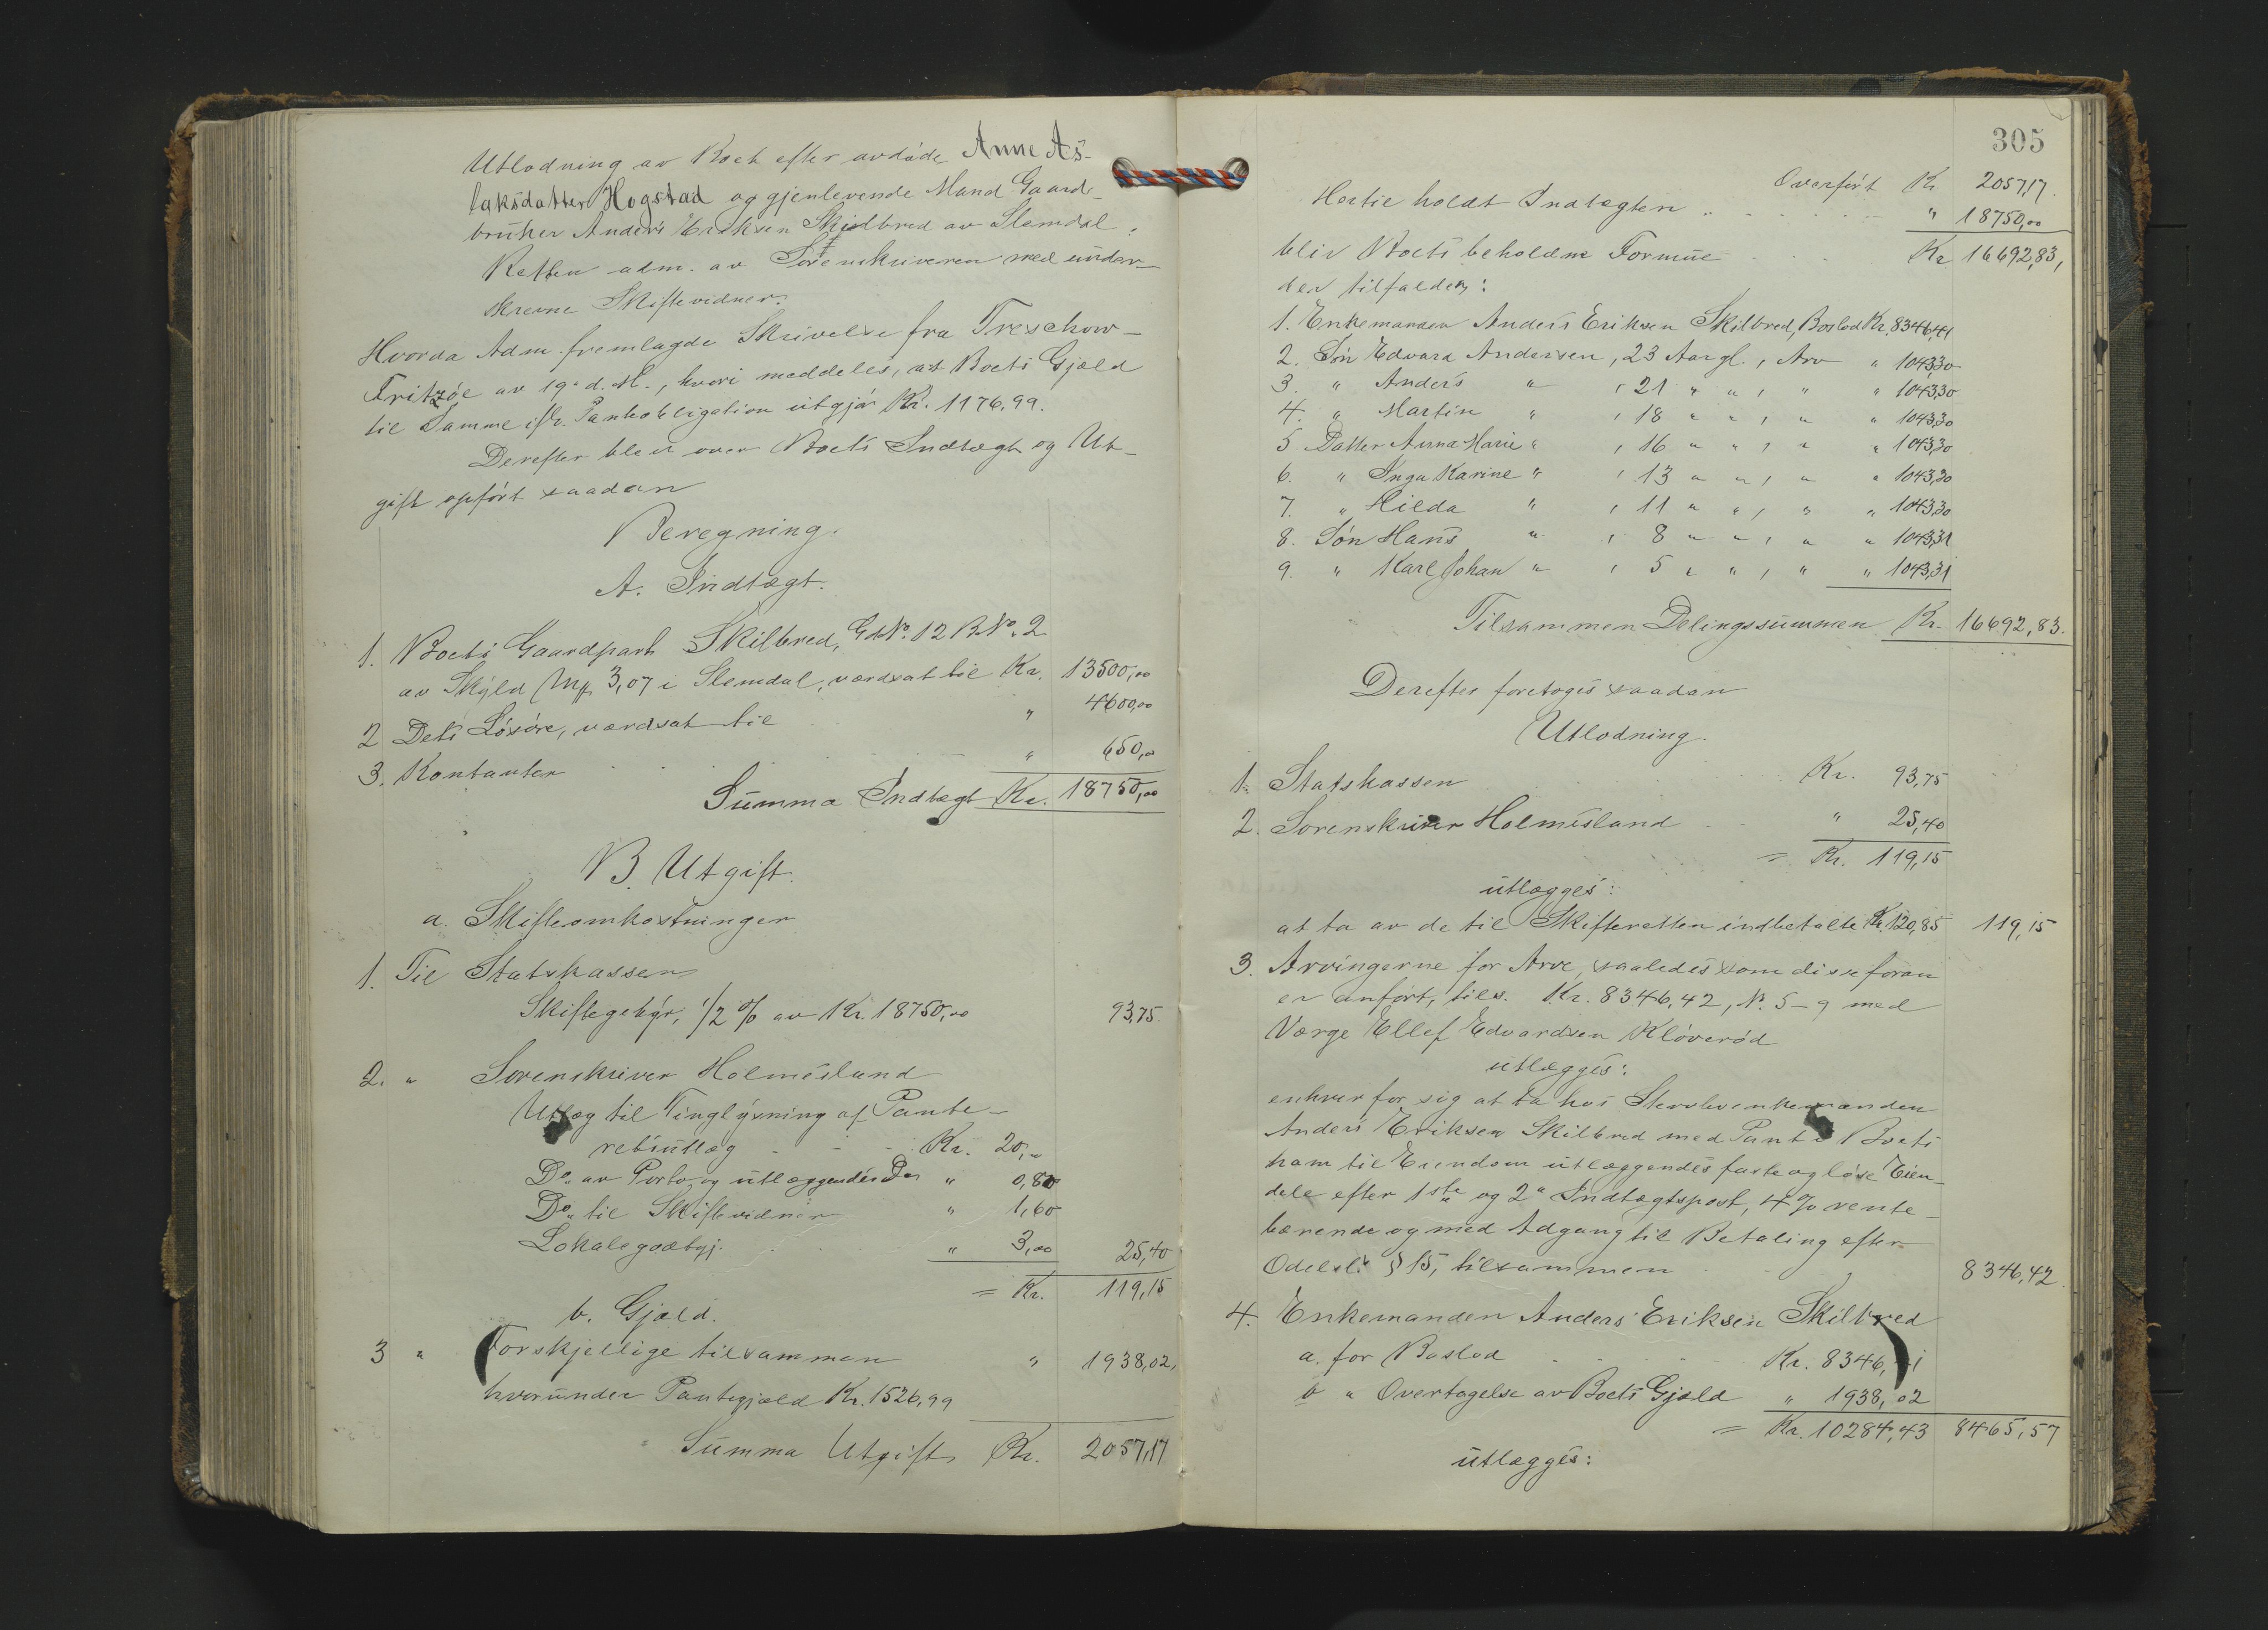 Utlodning av Boet efter avdøde Anne As-
laksdatter Hogstad og gjenlevende Mand Gaard-
bruker Anders Eriksen Skilbred av Slemdal.
Retten adm. av Sorenskriveren med under-
skrevne Skiftevidner.
Hvorda Adm. fremlagde Skrivelse fra Treschow-
Fritzøe av 19de d. M., hvori meddeles, at Boets Gjæld
til Samme ifl. Panteobligation utgjør Kr. 1176,99.
Derefter blev over Boets Indtægt og Ut-
gift opført saadan
Beregning.
A. Indtægt.
1. Boets Gaardpart Skilbred, G.No. 12 B.No. 2
av Skyld Mk 3,07 i Slemdal, værdsat til Kr. 13500,00
2 Dets Løsøre, værdsat til " 4600,00
3. Kontanter " 650,00
Summa Indtægt Kr. 18750,00
B. Utgift.
a. Skifteomkostninger
1. Til Statskassen
Skiftegebyr, 1/2 % av Kr. 18750,00 93,75.
2. " Sorenskriver Holmesland
Utlæg til Tinglysning af Pante-
retsutlæg Kr. 20,00
Do. av Porto og utlæggendes " 0,80
Do. til Skiftevidner " 1,60
Lokalegodtgj. " 3,00 25,40
= Kr. 119,15
b. Gjæld.
3 " Forskjellige tilsammen " 1938,02,
hvorunder Pantegjæld Kr. 1526,99
Summa Utgift Kr. 2057,17
305
Overført Kr 2057,17.
Hertil holdt Indtægten " 18750,00
bliv Boets beholdne Formue Kr 16692,83,
der tilfalder:
1. Enkemanden Anders Eriksen Skilbred, Boslod Kr. 8346,41
2. Søn Edvard Andersen, 23 Aar gl., Arv " 1043,30
3. " Anders " , 21 " " , " " 1043,30
4. " Martin " , 18 " " , " " 1043,30
5 Datter Anna Marie " , 16 " " , " " 1043,30
6. " Inga Karine " , 13 " " , " " 1043,30
7. " Hilda " , 11 " " , " " 1043,30
8. Søn Hans " , 8 " " , " " 1043,31
9. " Karl Johan " , 5 " " , " " 1043,31
Tilsammen Delingssummen Kr. 16692,83.
Derefter foretoges saadan
Utlodning.
1. Statskassen Kr. 93,75
2. Sorenskriver Holmesland " 25,40
= Kr. 119,15
utlægges:
at ta av de til Skifteretten indbetalte Kr. 120,85 119,15
3. Arvingerne for Arve, saaledes som disse foran
er anført, tils. Kr. 8346,42, No. 5-9 med
Værge Ellef Edvardsen Kløverød
utlægges:
enhver for sig at ta hos Stervboenkemanden
Anders Eriksen Skilbred med Pant i Boets
ham til Eiendom utlæggendes faste og løse Eien-
dele efter 1ste og 2den Indtægtspost, 4% rente-
bærende og med Adgang til Betaling efter
Odelsl. § 15, tilsammen 8346,42.
4. Enkemanden Anders Eriksen Skilbred
a. for Boslod Kr. 8346,41
b " Overtagelse av Boets Gjæld " 1938,02
= Kr. 10284,43 8465,57
utlægges: